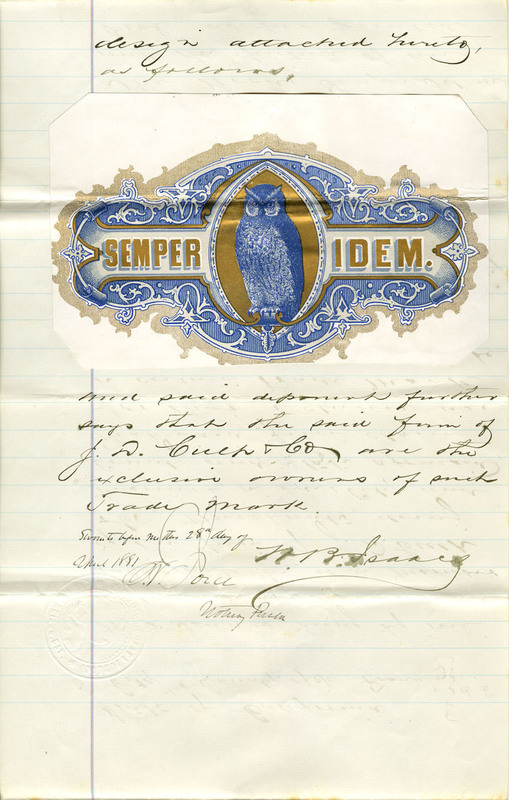 design attached hereto,
as follows,
SEMPER IDEM.
and said deponent further
says that the said firm of
J. D. Culp & Co are the
exclusive owners of such
Trade Mark.
Sworn to before me this 28th day of
April 1881
W. B. Isaacs
Notary Public